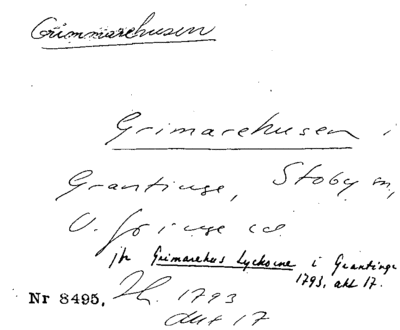 Grimmarehusen
Grimarehusen i
Grantinge, Stoby sn,
V. Göinge hd
jfr Grimarehus Lyckorne i Grantinge
1793, akt 17.
Nr 8495. Lh. 1793
akt 17